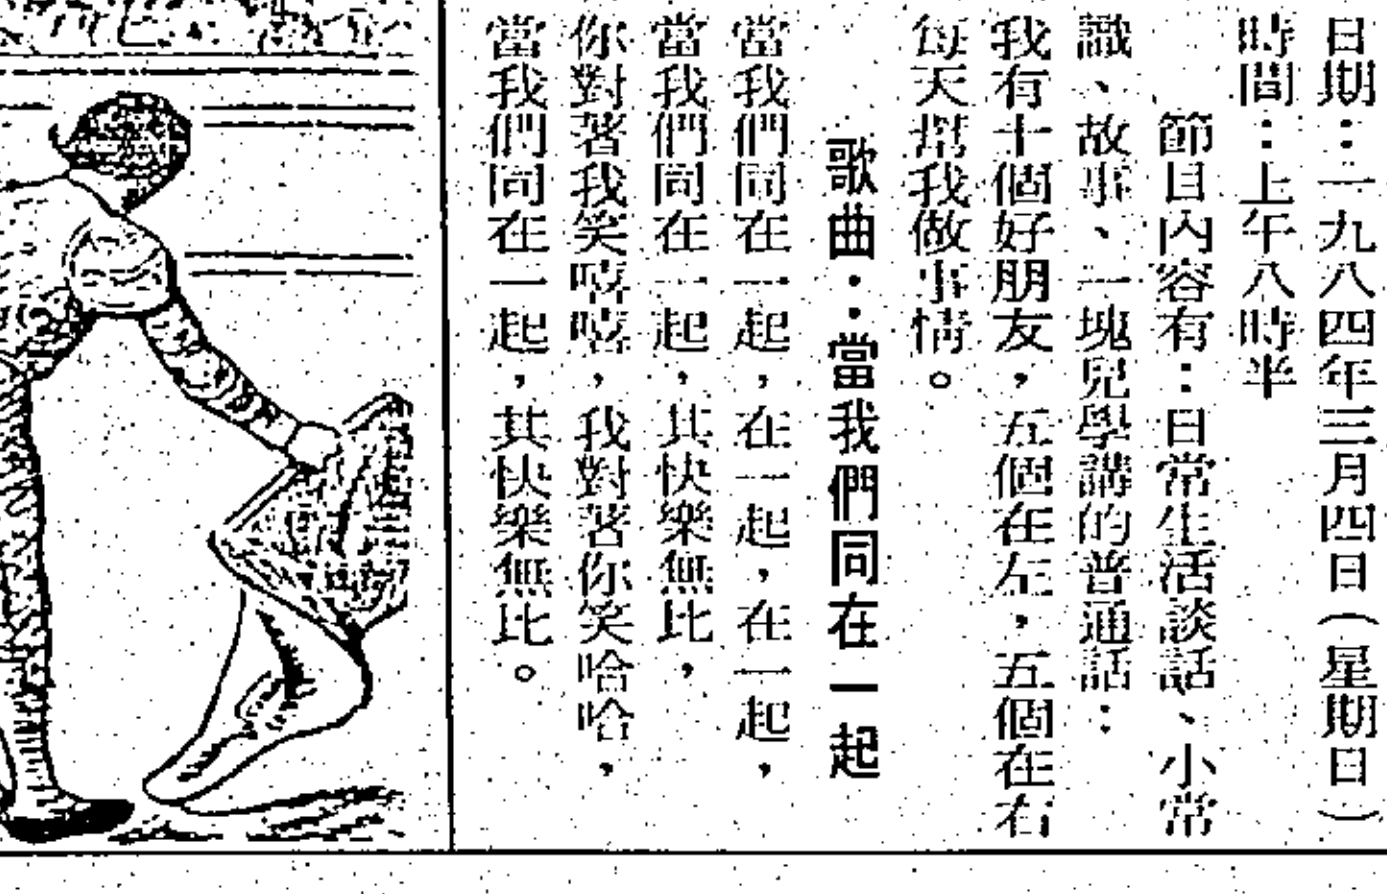 日期：一九八四年三月四日（星期日）
時間：上午八時半
節目內容有：日常生活談話、小常
識、故事、一塊兒學講的普通話：
我有十個好朋友，五個在左，五個在右
每天幫我做事情。
歌曲：當我們同在一起
當我們同在一起，在一起，在一起，
當我們同在一起，其快樂無比，
你對著我笑嘻嘻，我對著你笑哈哈，
當我們同在一起，其快樂無比。